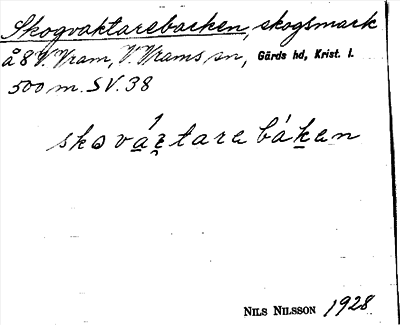 Skogvaktarebacken, skogsmark
å 8 V. Vram, V. Vrams sn, Gärds hd, Krist. l.
500 m. SV. 38
sková̱ʒ̱tarebáḵen
NILS NILSSON 1928